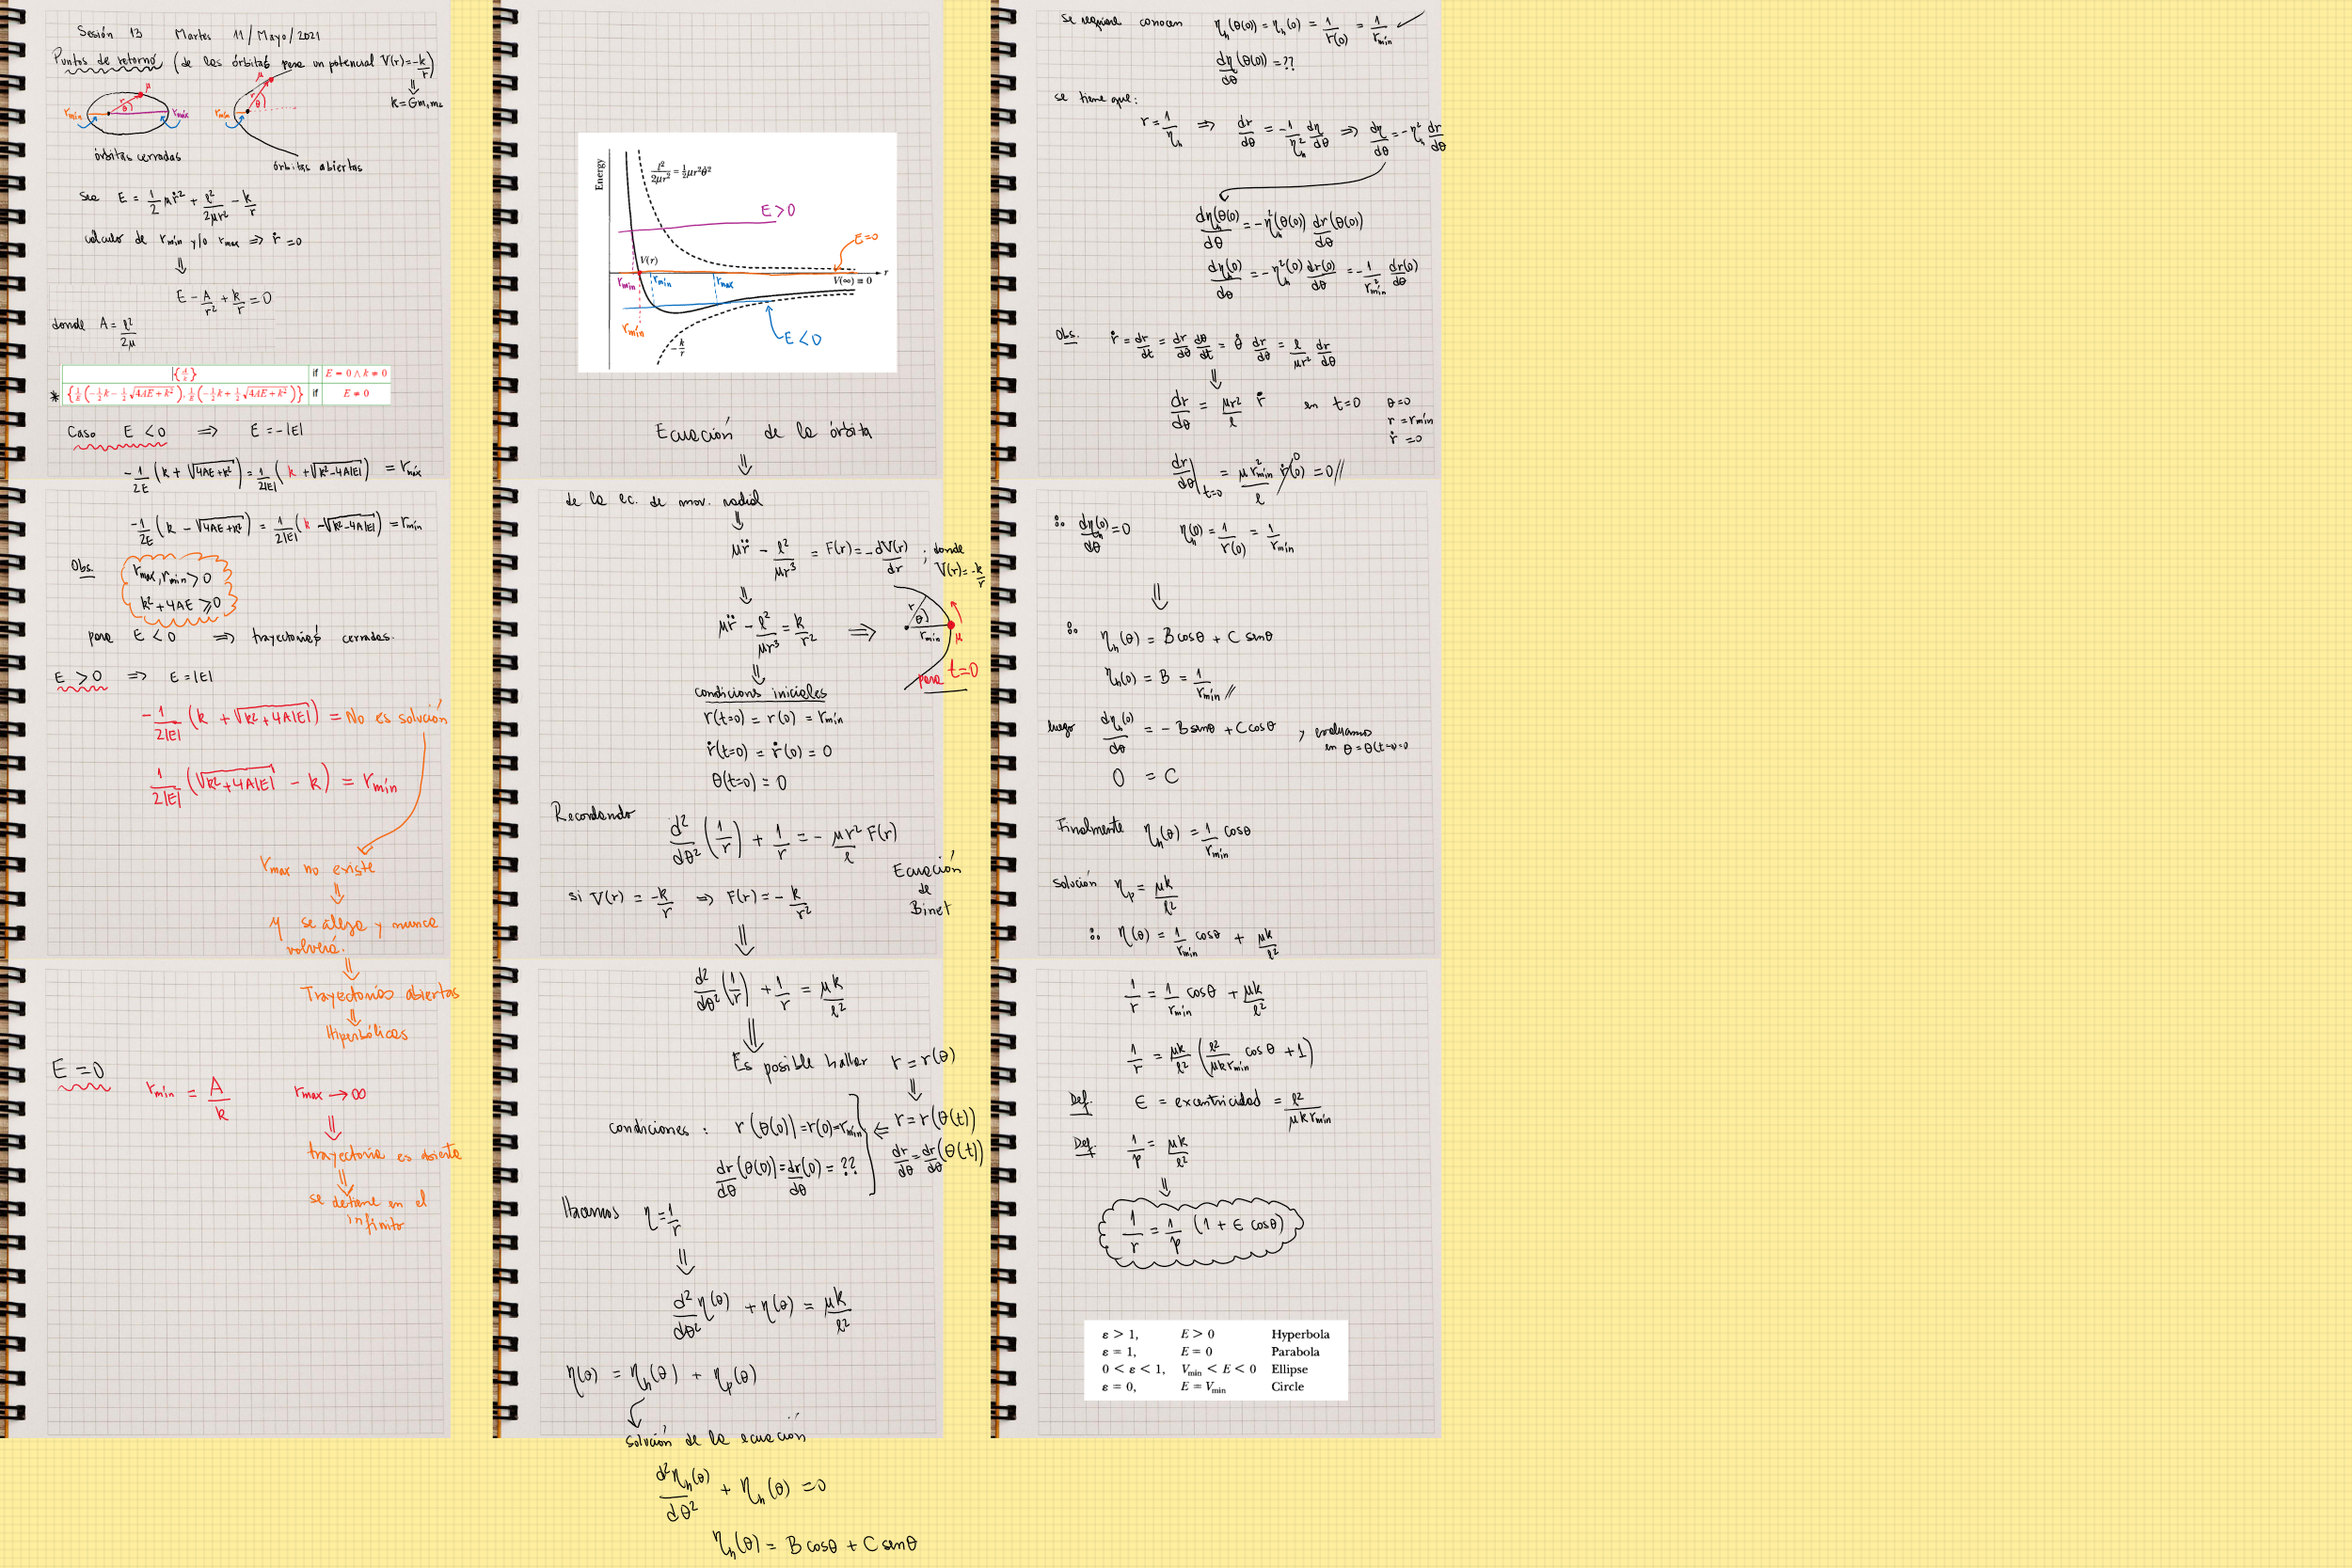 Sesión 13 Martes 11/Mayo/2021
Puntos de retorno (de las órbitas para un potencial V(r)=-k/r)
k=Gm₁m₂
r mín r θ μ r máx
r mín r θ μ
órbitas cerradas
órbitas abiertas
Sea E = 1/2 μṙ² + ℓ²/2μr² - k/r
cálculo de rmín y/o rmax ⇒ ṙ=0
⇓
E - A/r² + k/r = 0
donde A = ℓ²/2μ
{A/k} if E = 0 ∧ k ≠ 0
* {1/E(-1/2 k - 1/2 √(4AE+k²)), 1/E(-1/2 k + 1/2 √(4AE+k²))} if E ≠ 0
Caso E<0 ⇒ E=-|E|
-1/2E (k + √(4AE+k²)) = 1/2|E| (k + √(k²-4A|E|)) = rmáx
-1/2E (k - √(4AE+k²)) = 1/2|E| (k - √(k²-4A|E|)) = rmín
Obs. rmax, rmin > 0
k²+4AE ≥ 0
para E<0 ⇒ trayectorias cerradas.
E>0 ⇒ E=|E|
-1/2|E| (k + √(k²+4A|E|)) = No es solución
1/2|E| (√(k²+4A|E|) - k) = rmín
rmax no existe
⇓
y se aleja y nunca
volverá.
⇓
Trayectorias abiertas
⇓
Hiperbólicas
E=0
rmín = A/k rmax → ∞
⇓
trayectoria es abierta
⇓
se detiene en el
infinito
Energy
ℓ²/2μr² = ½μr²θ̇²
E>0
E=0
V(r)
r
rmin rmin rmax V(∞) = 0
rmín
-k/r
E<0
Ecuación de la órbita
⇓
de la ec. de mov. radial
⇓
μr̈ - ℓ²/μr³ = F(r) = -dV(r)/dr ; donde
V(r)=-k/r
⇓
μr̈ - ℓ²/μr³ = k/r² ⇒
r θ rmín μ
para t=0
⇓
condicions iniciales
r(t=0) = r(0) = rmín
ṙ(t=0) = ṙ(0) = 0
θ(t=0) = 0
Recordando
d²/dθ² (1/r) + 1/r = - μr²/ℓ F(r)
Ecuación
de
Binet
si V(r) = -k/r ⇒ F(r) = -k/r²
⇓
d²/dθ² (1/r) + 1/r = μk/ℓ²
⇓
Es posible hallar r = r(θ)
⇓
condiciones : r(θ(0))=r(0)=rmín ⇐ r = r(θ(t))
dr/dθ (θ(0)) = dr/dθ (0) = ?? dr/dθ = dr/dθ (θ(t))
Hacemos η = 1/r
⇓
d²η(θ)/dθ² + η(θ) = μk/ℓ²
η(θ) = ηh(θ) + ηp(θ)
Solución de la ecuación
d²ηh(θ)/dθ² + ηh(θ) = 0
ηh(θ) = B cosθ + C senθ
Se requiere conocer ηh(θ(0)) = ηh(0) = 1/r(0) = 1/rmín ✓
dη/dθ (θ(0)) = ??
se tiene que:
r = 1/ηh ⇒ dr/dθ = -1/ηh² dη/dθ ⇒ dη/dθ = -ηh² dr/dθ
dηh(θ(0))/dθ = -ηh²(θ(0)) dr/dθ (θ(0))
dηh(0)/dθ = -ηh²(0) dr(0)/dθ = -1/r²mín dr(0)/dθ
Obs. ṙ = dr/dt = dr/dθ dθ/dt = θ̇ dr/dθ = ℓ/μr² dr/dθ
⇓
dr/dθ = μr²/ℓ ṙ en t=0 θ=0
r=rmín
ṙ=0
dr/dθ|t=0 = μr²mín/ℓ ṙ(0) 0 = 0//
∴ dηh(0)/dθ = 0 ηh(0) = 1/r(0) = 1/rmín
⇓
∴ ηh(θ) = B cosθ + C senθ
ηh(0) = B = 1/rmín //
luego dηh(0)/dθ = -B senθ + C cosθ , evaluamos
en θ=θ(t=0)=0
0 = C
Finalmente ηh(θ) = 1/rmín cosθ
Solución ηp = μk/ℓ²
∴ η(θ) = 1/rmín cosθ + μk/ℓ²
1/r = 1/rmín cosθ + μk/ℓ²
1/r = μk/ℓ² (ℓ²/μk rmín cosθ + 1)
Def. ϵ = excentricidad = ℓ²/μk rmín
Def. 1/p = μk/ℓ²
⇓
1/r = 1/p (1 + ϵ cosθ)
ε > 1, E > 0 Hyperbola
ε = 1, E = 0 Parabola
0 < ε < 1, Vmin < E < 0 Ellipse
ε = 0, E = Vmin Circle